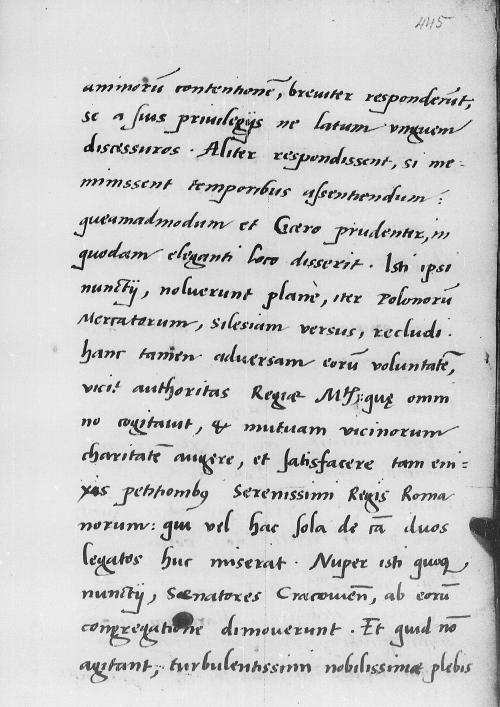 445
aminorū contentionē, breviter responderūt,
se a suis privilegijs ne latum unguem
discessuros. Aliter respondissent, si me-
minissent temporibus assentiendum:
queamadmodum et Cicero prudenter, in
quodam eleganti loco disserit. Isti ipsi
nunctij, noluerunt planè, iter Polonorū
Mercatorum, Silesiam versus, recludi.
hanc tamen adversam eorū voluntatē,
vicit authoritas Regiæ Mtis; quę omni
no cogitavit, & mutuam vicinorum
charitatē augere, et satisfacere tam eni=
xis petitionibꝫ Serenissimi Regis Roma
norum: qui vel hac sola de cā duos
legatos huc miserat. Nuper isti quoqꝫ
nunctij, Sænatores Cracovien̄, ab eorū
congregatione dimoverunt. Et quid nō
agitant, turbulentissimi nobilissimæ plebis